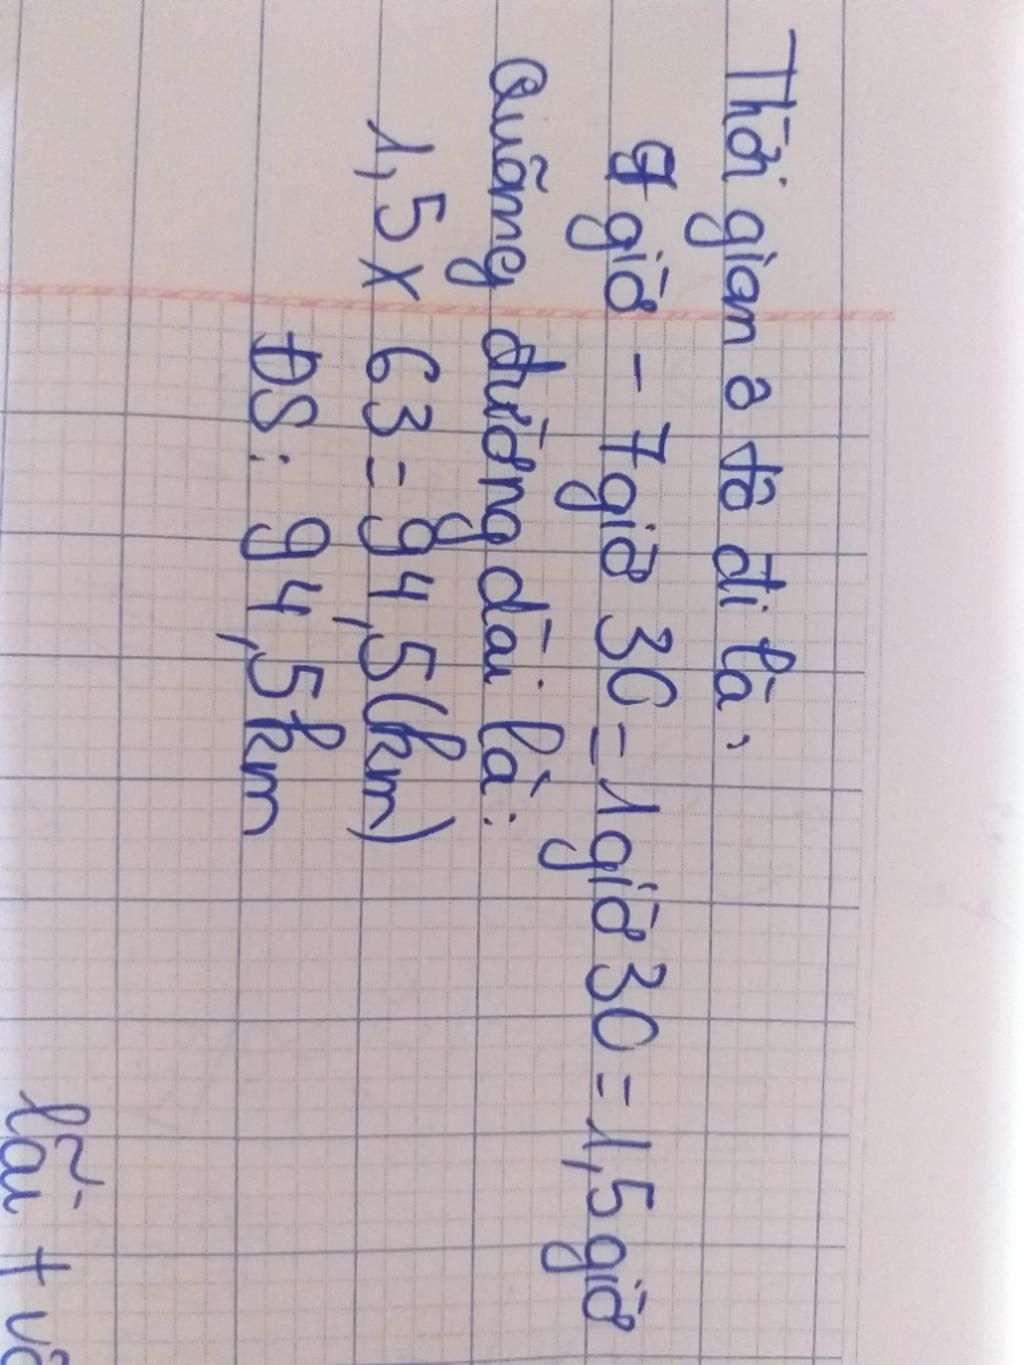 Thời gian ô tô đi là:
9 giờ - 7 giờ 30 = 1 giờ 30 = 1,5 giờ
Quãng đường dài là:
1,5 x 63 = 94,5 (km)
ĐS: 94,5 km
lãi +